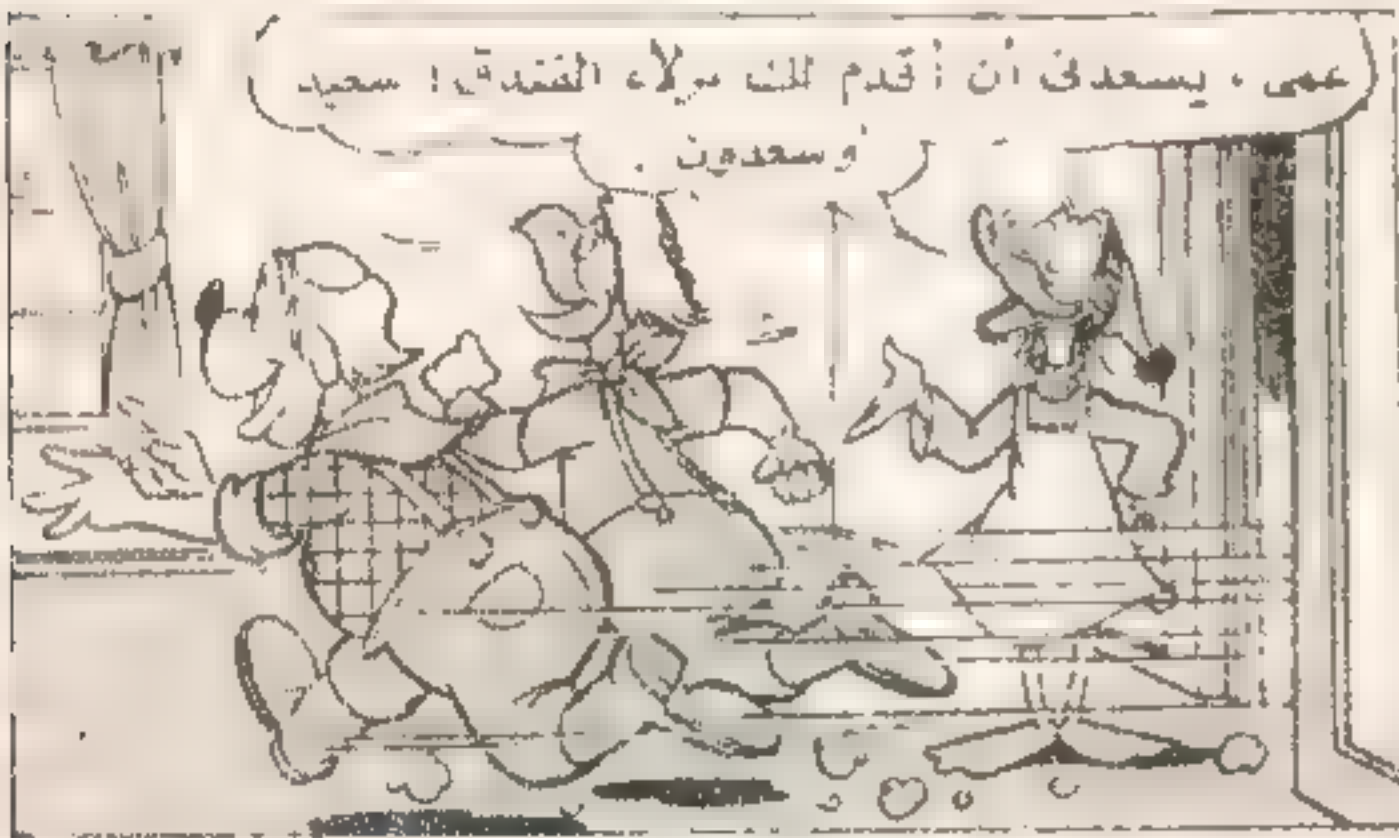 عمى ، يسعدنى أن أقدم لك نزلاء الفندق ! سعيد
وسعدون .